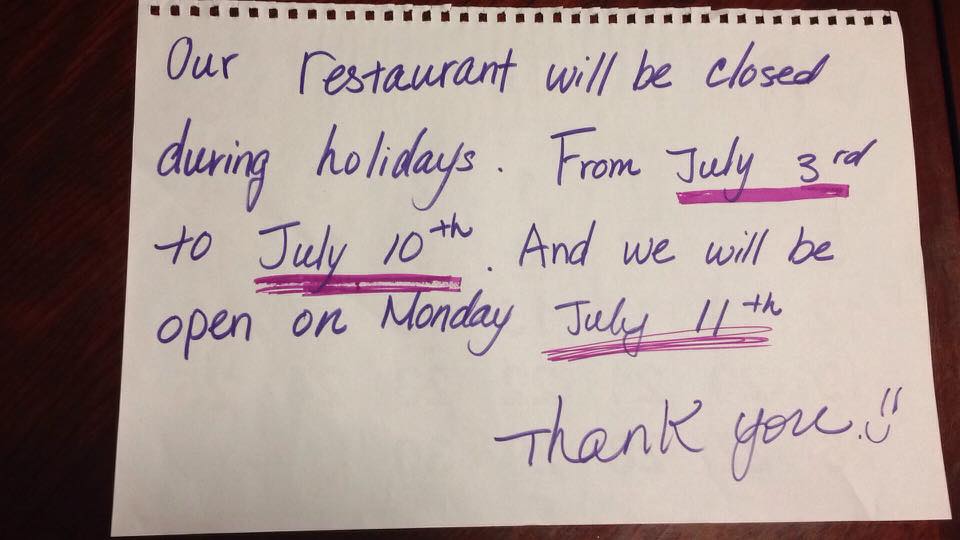 Our restaurant will be closed
during holidays. From July 3rd
to July 10th. And we will be
open on Monday July 11th
Thank you.